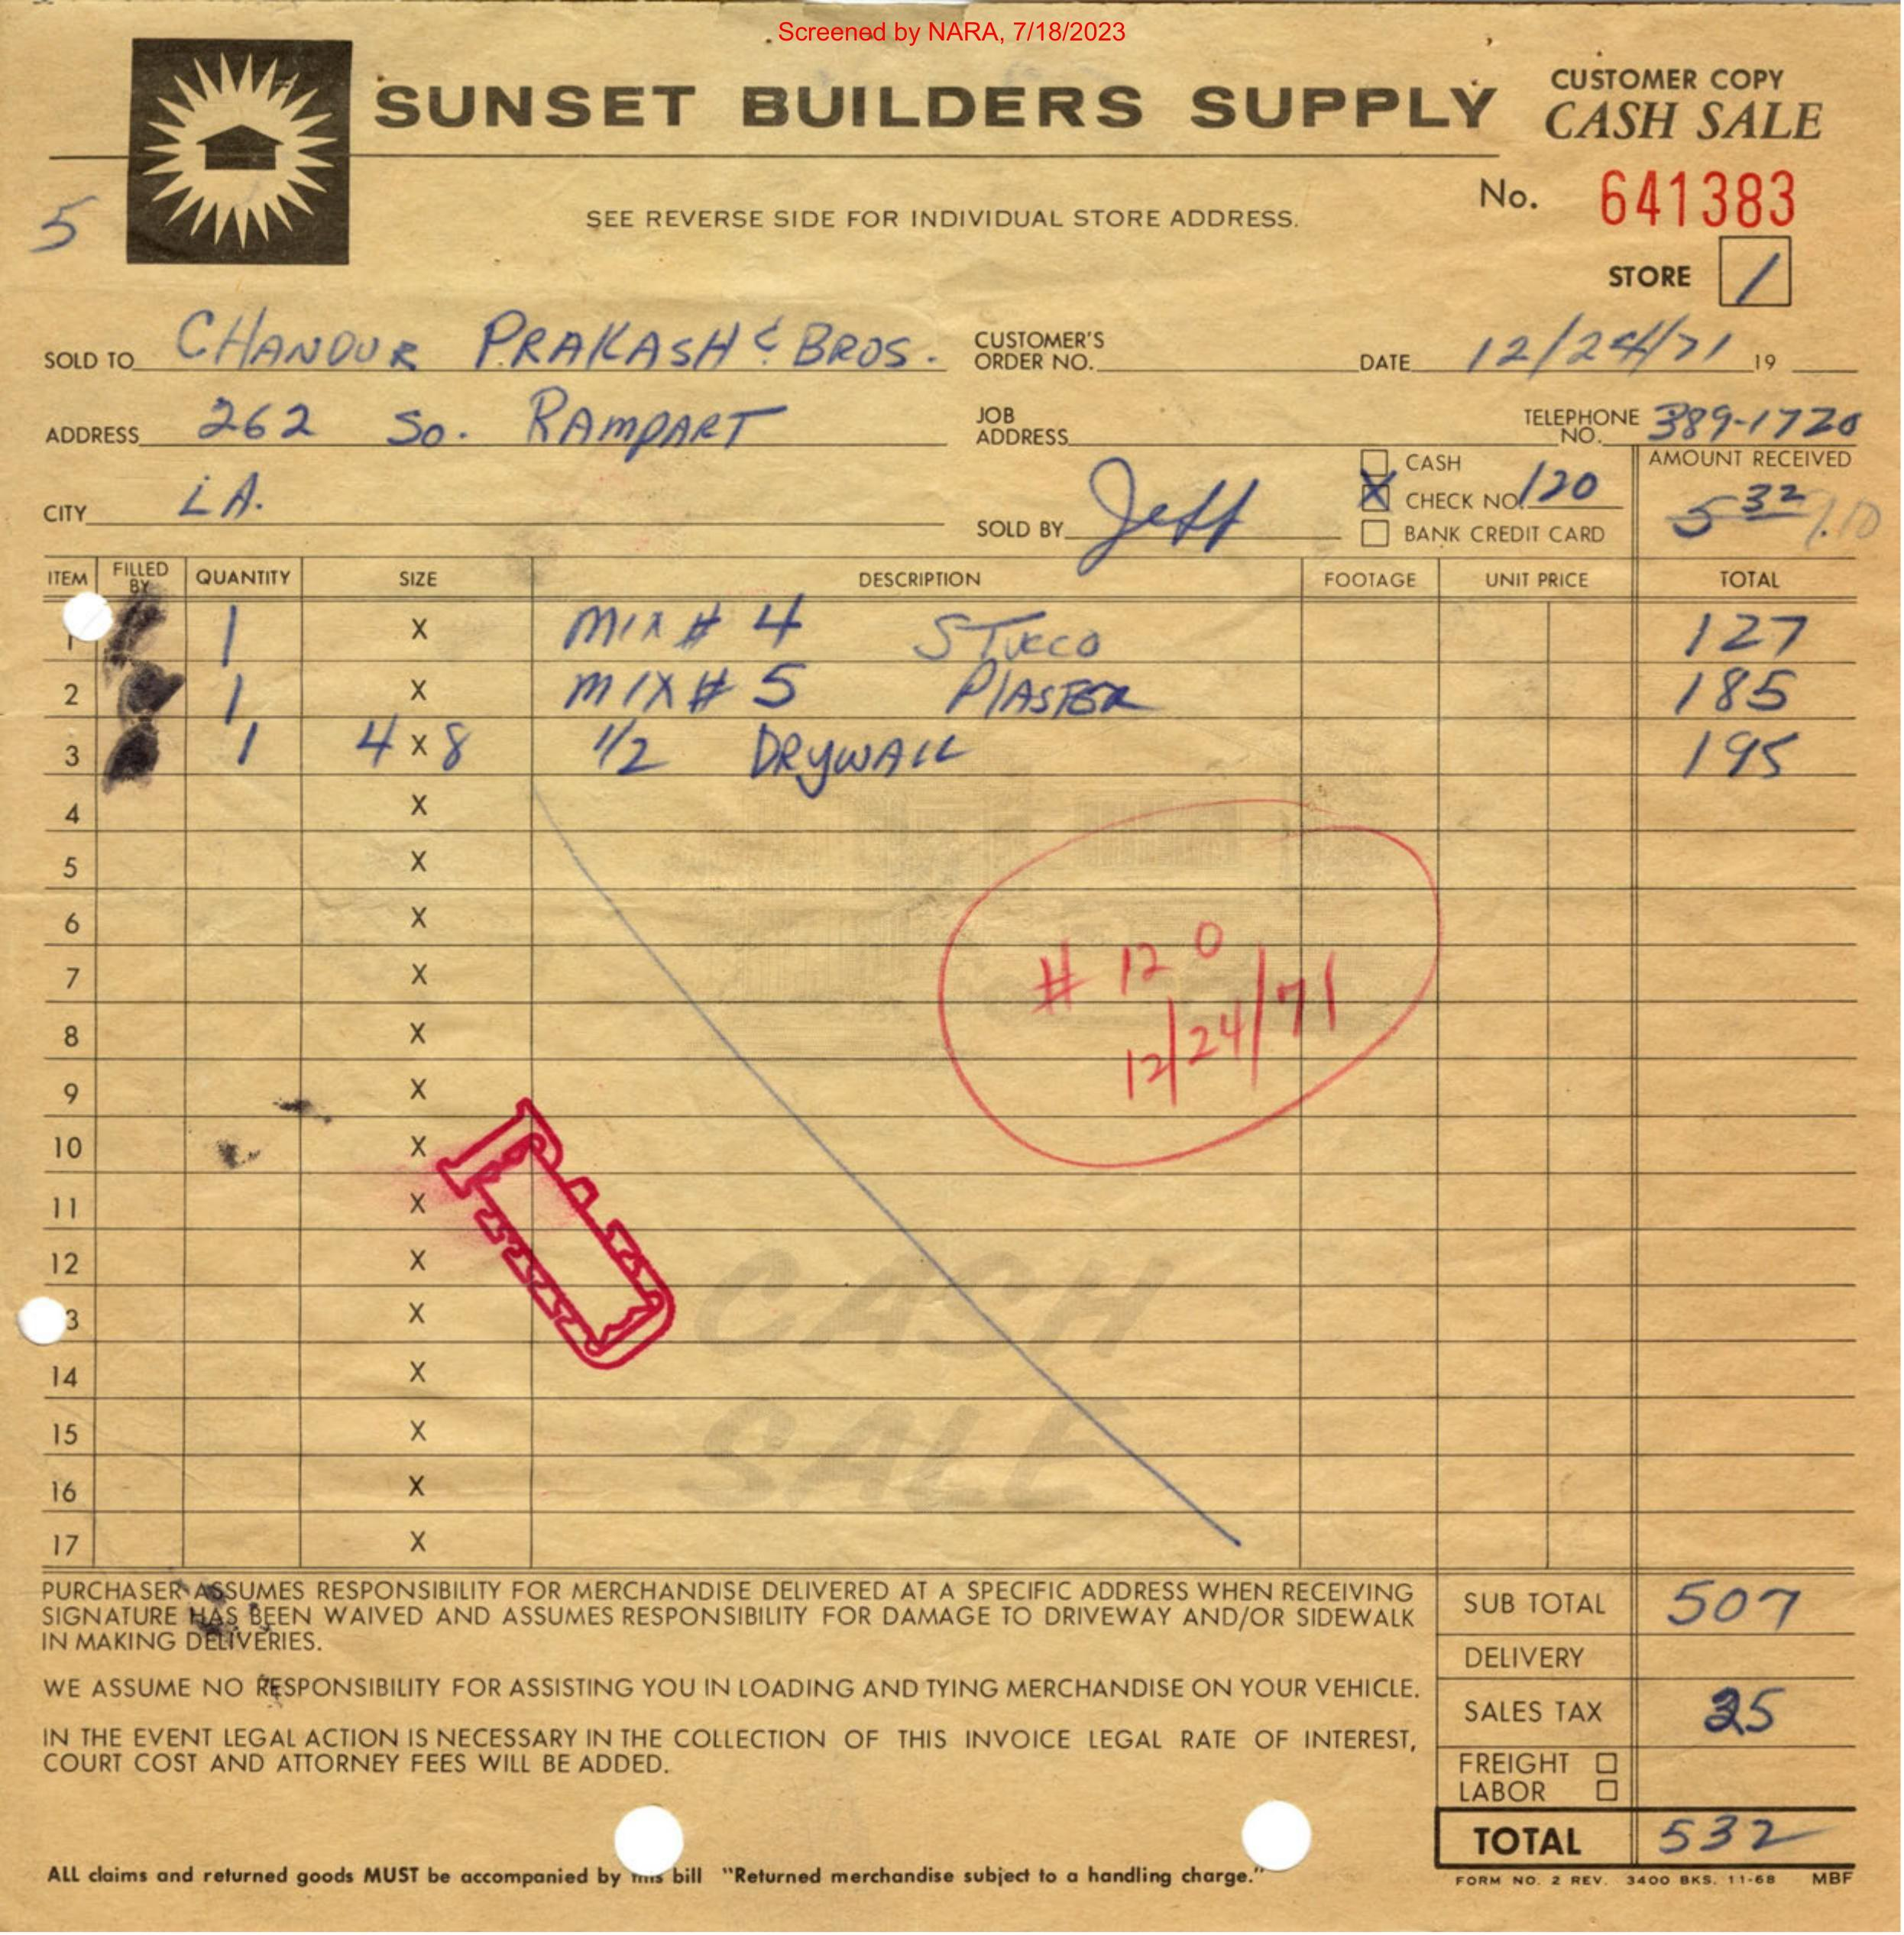 Screened by NARA, 7/18/2023
SUNSET BUILDERS SUPPLY
CUSTOMER COPY
CASH SALE
No. 641383
SEE REVERSE SIDE FOR INDIVIDUAL STORE ADDRESS.
5
STORE 1
SOLD TO CHANDUR PRAKASH & BROS.
CUSTOMER'S ORDER NO.
DATE 12/24/71 19
ADDRESS 262 So. RAMPART
JOB ADDRESS
TELEPHONE NO. 389-1720
CITY LA.
SOLD BY Jeff
CASH
X CHECK NO. 120
BANK CREDIT CARD
AMOUNT RECEIVED
5 32
ITEM FILLED BY QUANTITY SIZE DESCRIPTION FOOTAGE UNIT PRICE TOTAL
1 1 X MIX # 4 STUCCO 127
2 1 X MIX # 5 PLASTER 185
3 1 4 X 8 1/2 DRYWALL 195
4 X
5 X
6 X
# 120
7 X
12/24/71
8 X
9 X
10 X
11 X
12 X
CASH
3 X
14 X
15 X
SALE
16 X
17 X
PURCHASER ASSUMES RESPONSIBILITY FOR MERCHANDISE DELIVERED AT A SPECIFIC ADDRESS WHEN RECEIVING
SIGNATURE HAS BEEN WAIVED AND ASSUMES RESPONSIBILITY FOR DAMAGE TO DRIVEWAY AND/OR SIDEWALK
IN MAKING DELIVERIES.
WE ASSUME NO RESPONSIBILITY FOR ASSISTING YOU IN LOADING AND TYING MERCHANDISE ON YOUR VEHICLE.
IN THE EVENT LEGAL ACTION IS NECESSARY IN THE COLLECTION OF THIS INVOICE LEGAL RATE OF INTEREST,
COURT COST AND ATTORNEY FEES WILL BE ADDED.
SUB TOTAL 507
DELIVERY
SALES TAX 25
FREIGHT
LABOR
TOTAL 532
ALL claims and returned goods MUST be accompanied by this bill "Returned merchandise subject to a handling charge."
FORM NO. 2 REV. 3400 BKS. 11-68 MBF